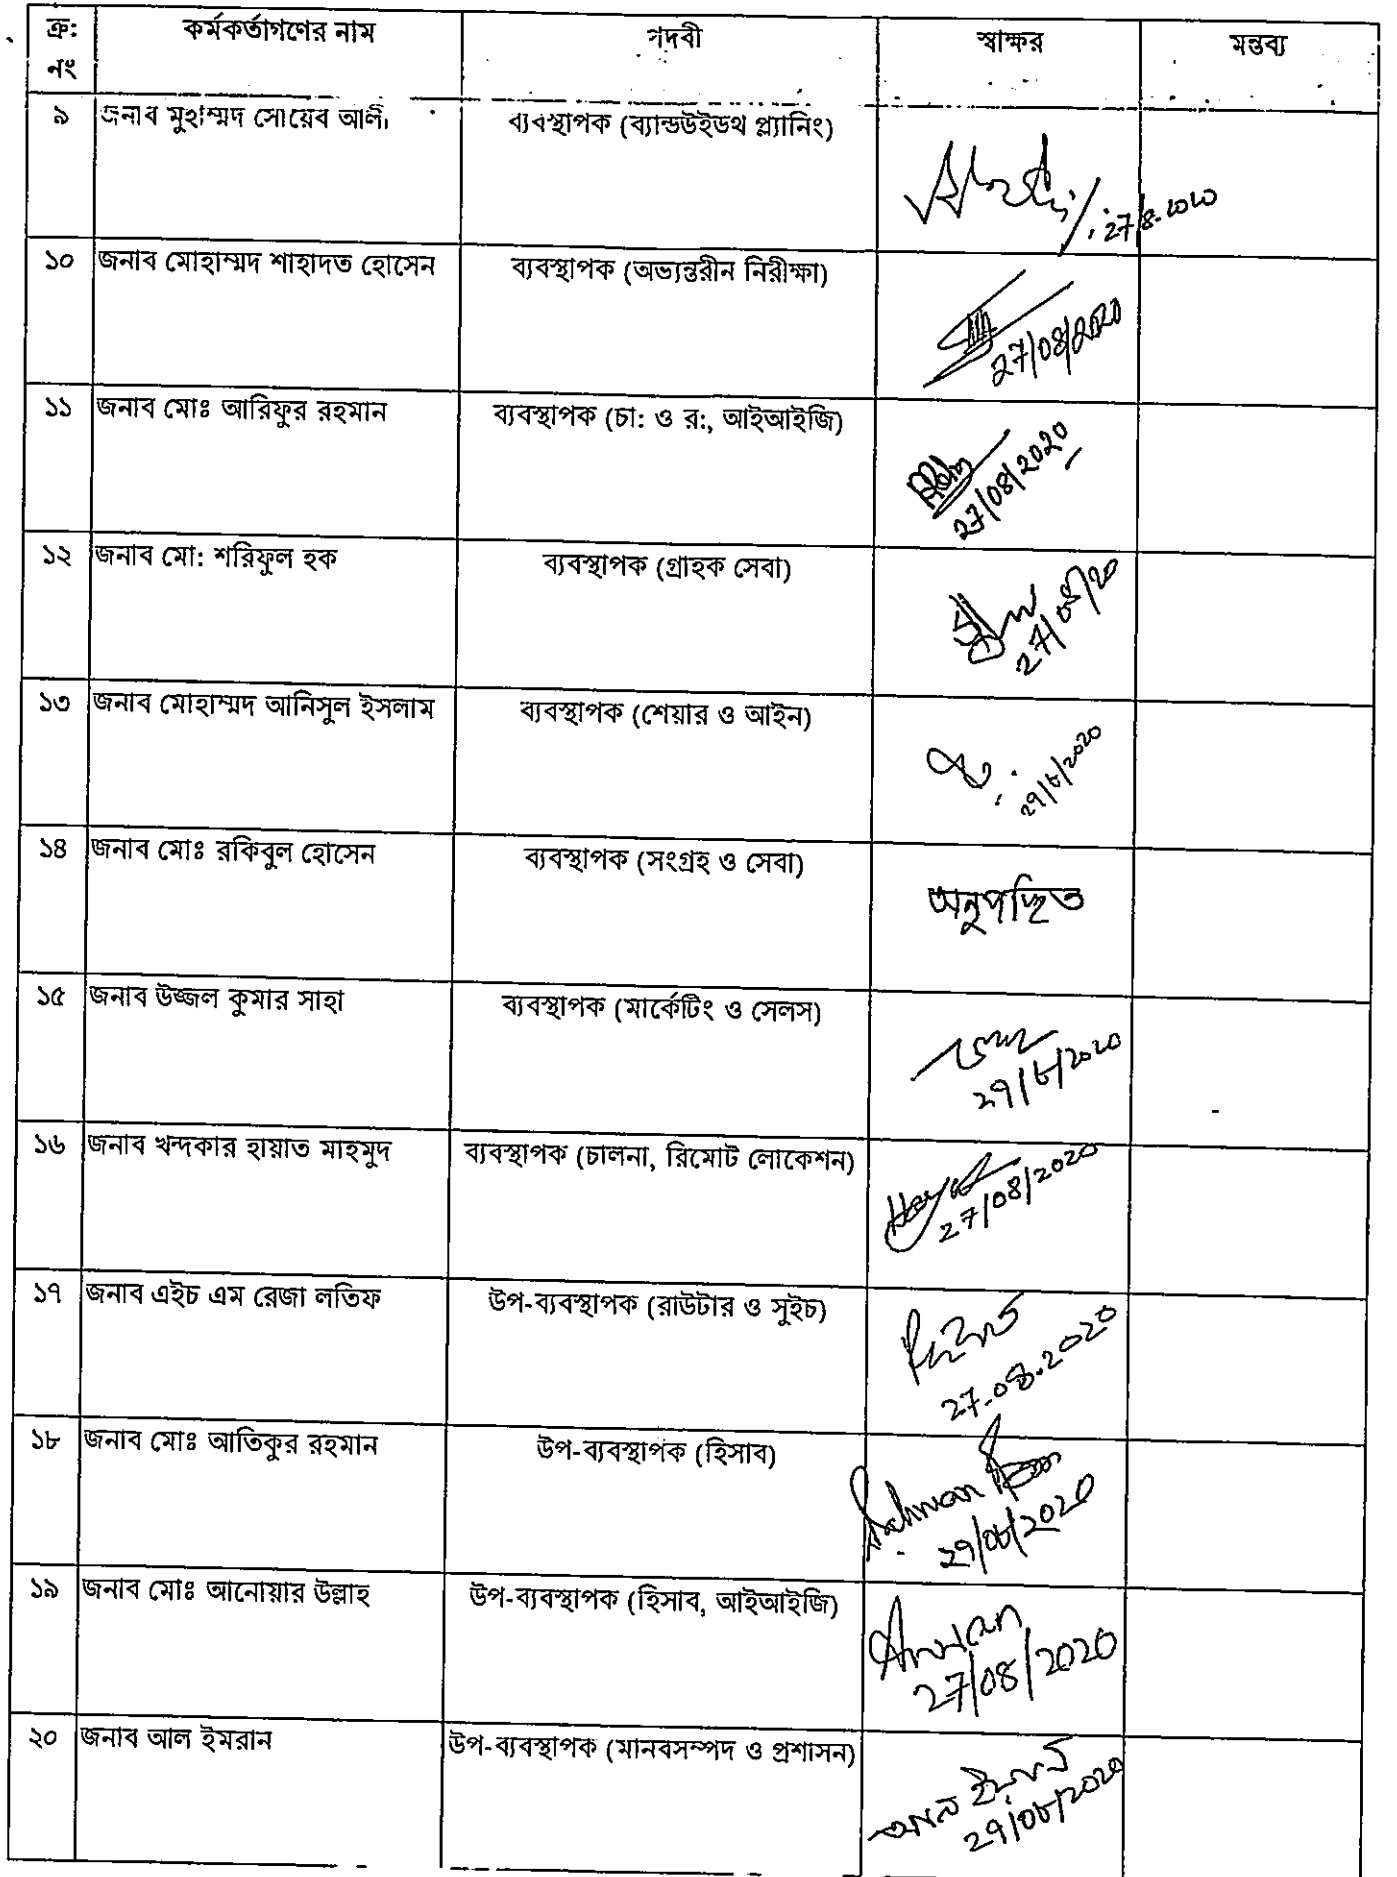 ক্র: নং কর্মকর্তাগণের নাম পদবী স্বাক্ষর মন্তব্য
৯ জনাব মুহাম্মদ সোয়েব আলী ব্যবস্থাপক (ব্যান্ডউইডথ প্ল্যানিং) 27/8.2020
১০ জনাব মোহাম্মদ শাহাদত হোসেন ব্যবস্থাপক (অভ্যন্তরীন নিরীক্ষা) 27/08/2020
১১ জনাব মোঃ আরিফুর রহমান ব্যবস্থাপক (চা: ও র:, আইআইজি) 27/08/2020
১২ জনাব মো: শরিফুল হক ব্যবস্থাপক (গ্রাহক সেবা) 27/08/20
১৩ জনাব মোহাম্মদ আনিসুল ইসলাম ব্যবস্থাপক (শেয়ার ও আইন) ২৭/৮/২০২০
১৪ জনাব মোঃ রকিবুল হোসেন ব্যবস্থাপক (সংগ্রহ ও সেবা) অনুপস্থিত
১৫ জনাব উজ্জল কুমার সাহা ব্যবস্থাপক (মার্কেটিং ও সেলস) ২৭/৮/২০২০
১৬ জনাব খন্দকার হায়াত মাহমুদ ব্যবস্থাপক (চালনা, রিমোট লোকেশন) 27/08/2020
১৭ জনাব এইচ এম রেজা লতিফ উপ-ব্যবস্থাপক (রাউটার ও সুইচ) 27.08.2020
১৮ জনাব মোঃ আতিকুর রহমান উপ-ব্যবস্থাপক (হিসাব) ২৭/০৮/২০২০
১৯ জনাব মোঃ আনোয়ার উল্লাহ উপ-ব্যবস্থাপক (হিসাব, আইআইজি) 27/08/2020
২০ জনাব আল ইমরান উপ-ব্যবস্থাপক (মানবসম্পদ ও প্রশাসন) আল ইমরান ২৭/০৮/২০২০